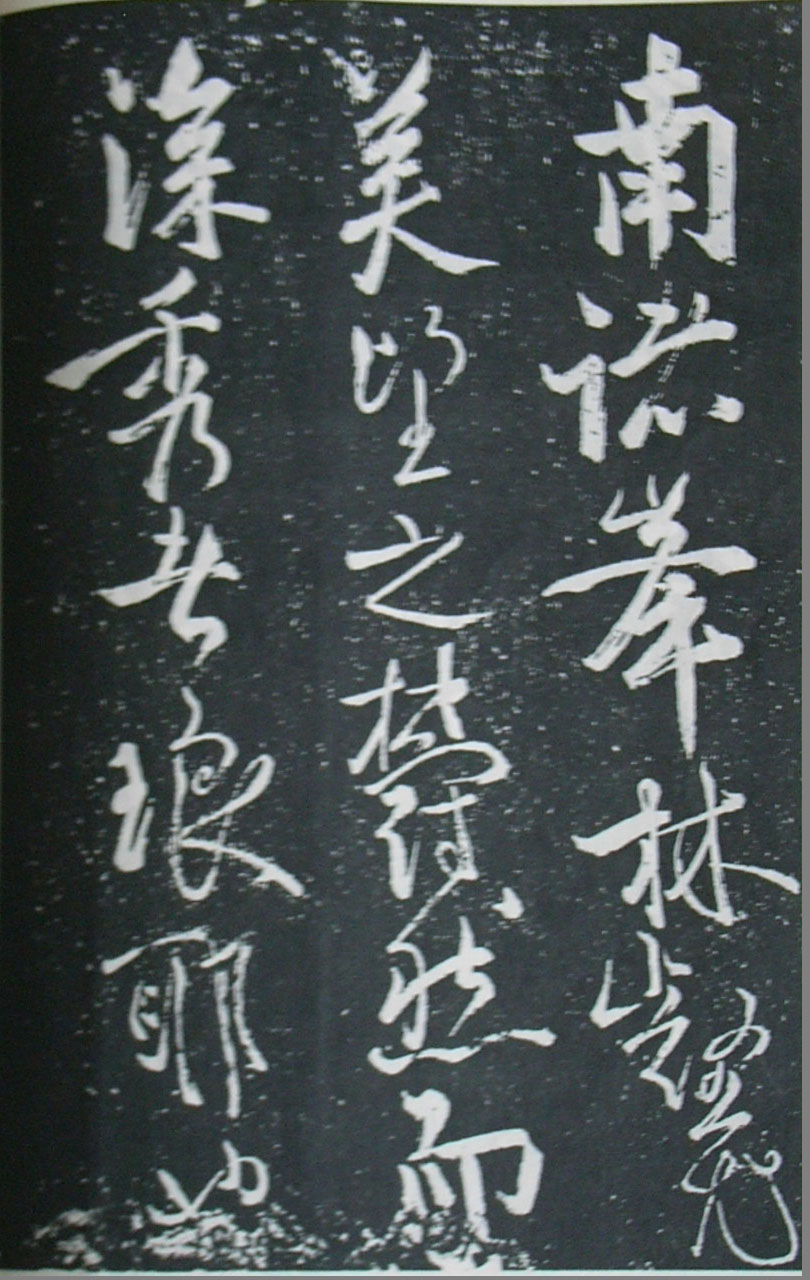 南諸峯林壑尤
美望之欝然而
深秀者琅耶也